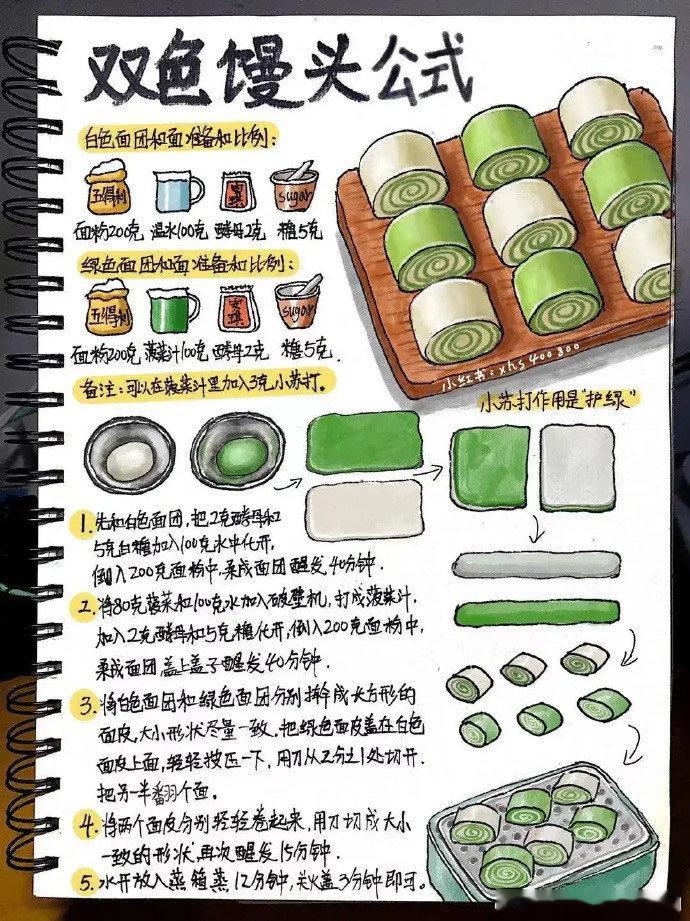 双色馒头公式
白色面团和面准备和比例：
五得利
安琪
sugar
面粉200克 温水100克 酵母2克 糖5克
绿色面团和面准备和比例：
五得利
安琪
sugar
面粉200克 菠菜汁100克 酵母2克 糖5克.
备注：可以在菠菜汁里加入3克小苏打。
小红书：xhs400800
小苏打作用是“护绿”
1. 先和白色面团，把2克酵母和
5克白糖加入100克水中化开，
倒入200克面粉中，柔成面团醒发40分钟.
2. 将80克菠菜和100克水加入破壁机，打成菠菜汁，
加入2克酵母和5克糖化开，倒入200克面粉中，
柔成面团盖上盖子醒发40分钟.
3. 将白色面团和绿色面团分别擀成长方形的
面皮，大小形状尽量一致，把绿色面皮盖在白色
面皮上面，轻轻按压一下，用刀从2分之1处切开.
把另一半翻个面.
4. 将两个面皮分别轻轻卷起来，用刀切成大小
一致的形状，再次醒发15分钟.
5. 水开放入蒸箱蒸12分钟，关火盖3分钟即可。